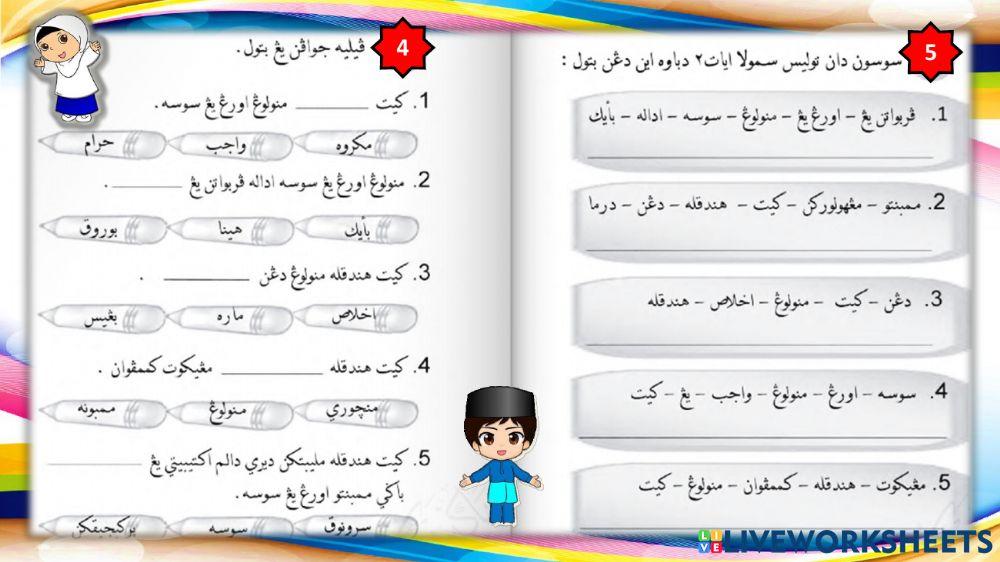 4
ڤيليه جواڤن يڠ بتول.
1. کيت ________ منولوڠ اورڠ يڠ سوسه.
مکروه واجب حرام
2. منولوڠ اورڠ يڠ سوسه اداله ڤربواتن يڠ ________.
بأيك هينا بوروق
3. کيت هندقله منولوڠ دڠن ________ .
اخلاص ماره بڠيس
4. کيت هندقله ________ مڠيکوت کممڤوان .
منچوري منولوڠ ممبونه
5. کيت هندقله مليبتکن ديري دالم اکتيۏيتي يڠ ________
باݢي ممبنتو اورڠ يڠ سوسه.
سرونوق سوسه برکبجيقکن
5
سوسون دان توليس سمولا ايات٢ دباوه اين دڠن بتول :
1. ڤربواتن يڠ – اورڠ يڠ – منولوڠ – سوسه – اداله – بأيك
2. ممبنتو – مڠهولورکن – کيت – هندقله – دڠن – درما
3. دڠن – کيت – منولوڠ – اخلاص – هندقله
4. سوسه – اورڠ – منولوڠ – واجب – يڠ – کيت
5. مڠيکوت – هندقله – کممڤوان – منولوڠ – کيت
LIVEWORKSHEETS